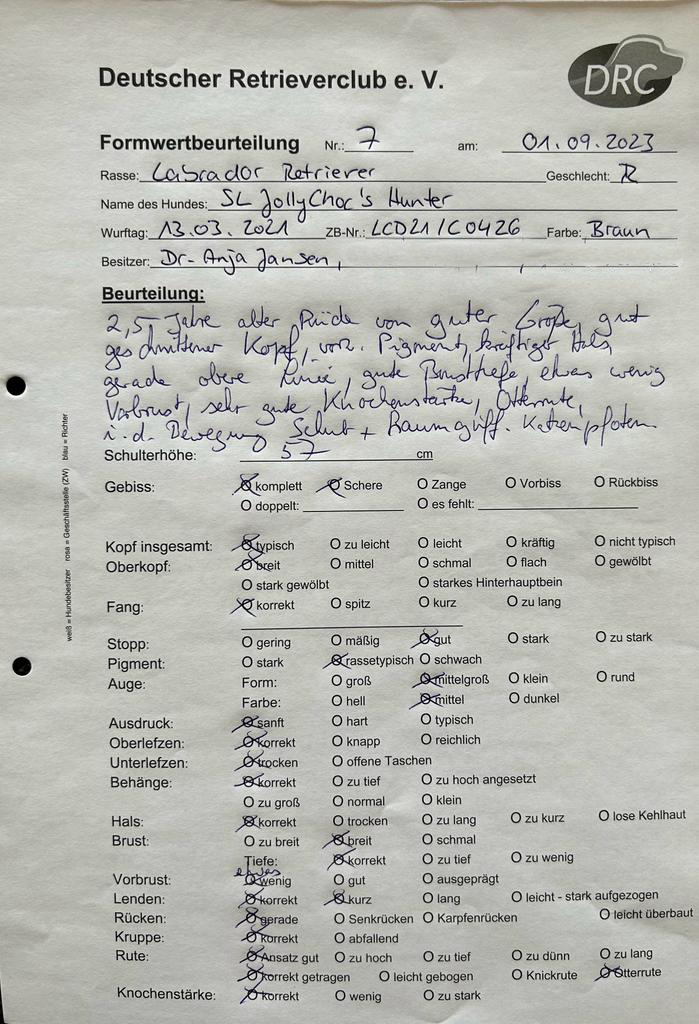 Deutscher Retrieverclub e. V.
DRC
Formwertbeurteilung Nr.: 7 am: 01.09.2023
Rasse: Labrador Retriever Geschlecht: R
Name des Hundes: SL JollyChoc's Hunter
Wurftag: 13.03.2021 ZB-Nr.: LCD21/C0426 Farbe: Braun
Besitzer: Dr. Anja Jansen,
Beurteilung:
2,5 Jahre alter Rüde von guter Größe, gut
geschnittener Kopf, vorz. Pigment, kräftiger Hals,
gerade obere Linie, gute Brusttiefe, etwas wenig
Vorbrust, sehr gute Knochenstärke, Otterrute,
i. d. Bewegung Schub + Raumgriff. Katzenpfoten.
Schulterhöhe: 57 cm
Gebiss: komplett Schere O Zange O Vorbiss O Rückbiss
O doppelt: O es fehlt:
Kopf insgesamt: typisch O zu leicht O leicht O kräftig O nicht typisch
Oberkopf: breit O mittel O schmal O flach O gewölbt
O stark gewölbt O starkes Hinterhauptbein
Fang: korrekt O spitz O kurz O zu lang
Stopp: O gering O mäßig gut O stark O zu stark
Pigment: O stark rassetypisch O schwach
Auge: Form: O groß mittelgroß O klein O rund
Farbe: O hell mittel O dunkel
Ausdruck: sanft O hart O typisch
Oberlefzen: korrekt O knapp O reichlich
Unterlefzen: trocken O offene Taschen
Behänge: korrekt O zu tief O zu hoch angesetzt
O zu groß O normal O klein
Hals: korrekt O trocken O zu lang O zu kurz O lose Kehlhaut
Brust: O zu breit breit O schmal
Tiefe: korrekt O zu tief O zu wenig
etwas
Vorbrust: wenig O gut O ausgeprägt
Lenden: korrekt kurz O lang O leicht - stark aufgezogen
Rücken: gerade O Senkrücken O Karpfenrücken O leicht überbaut
Kruppe: korrekt O abfallend
Rute: Ansatz gut O zu hoch O zu tief O zu dünn O zu lang
korrekt getragen O leicht gebogen O Knickrute Otterrute
Knochenstärke: korrekt O wenig O zu stark
weiß = Hundebesitzer rosa = Geschäftsstelle (ZW) blau = Richter